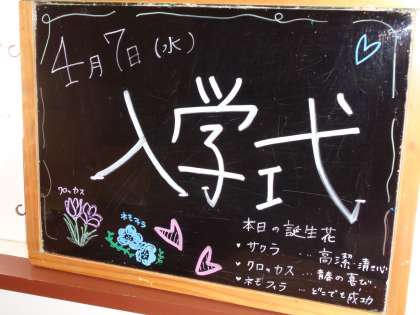 4月7日(水)
入学式
クロッカス
ネモフィラ
本日の誕生花
サクラ … 高潔・清い心
クロッカス … 青春の喜び
ネモフィラ … どこでも成功